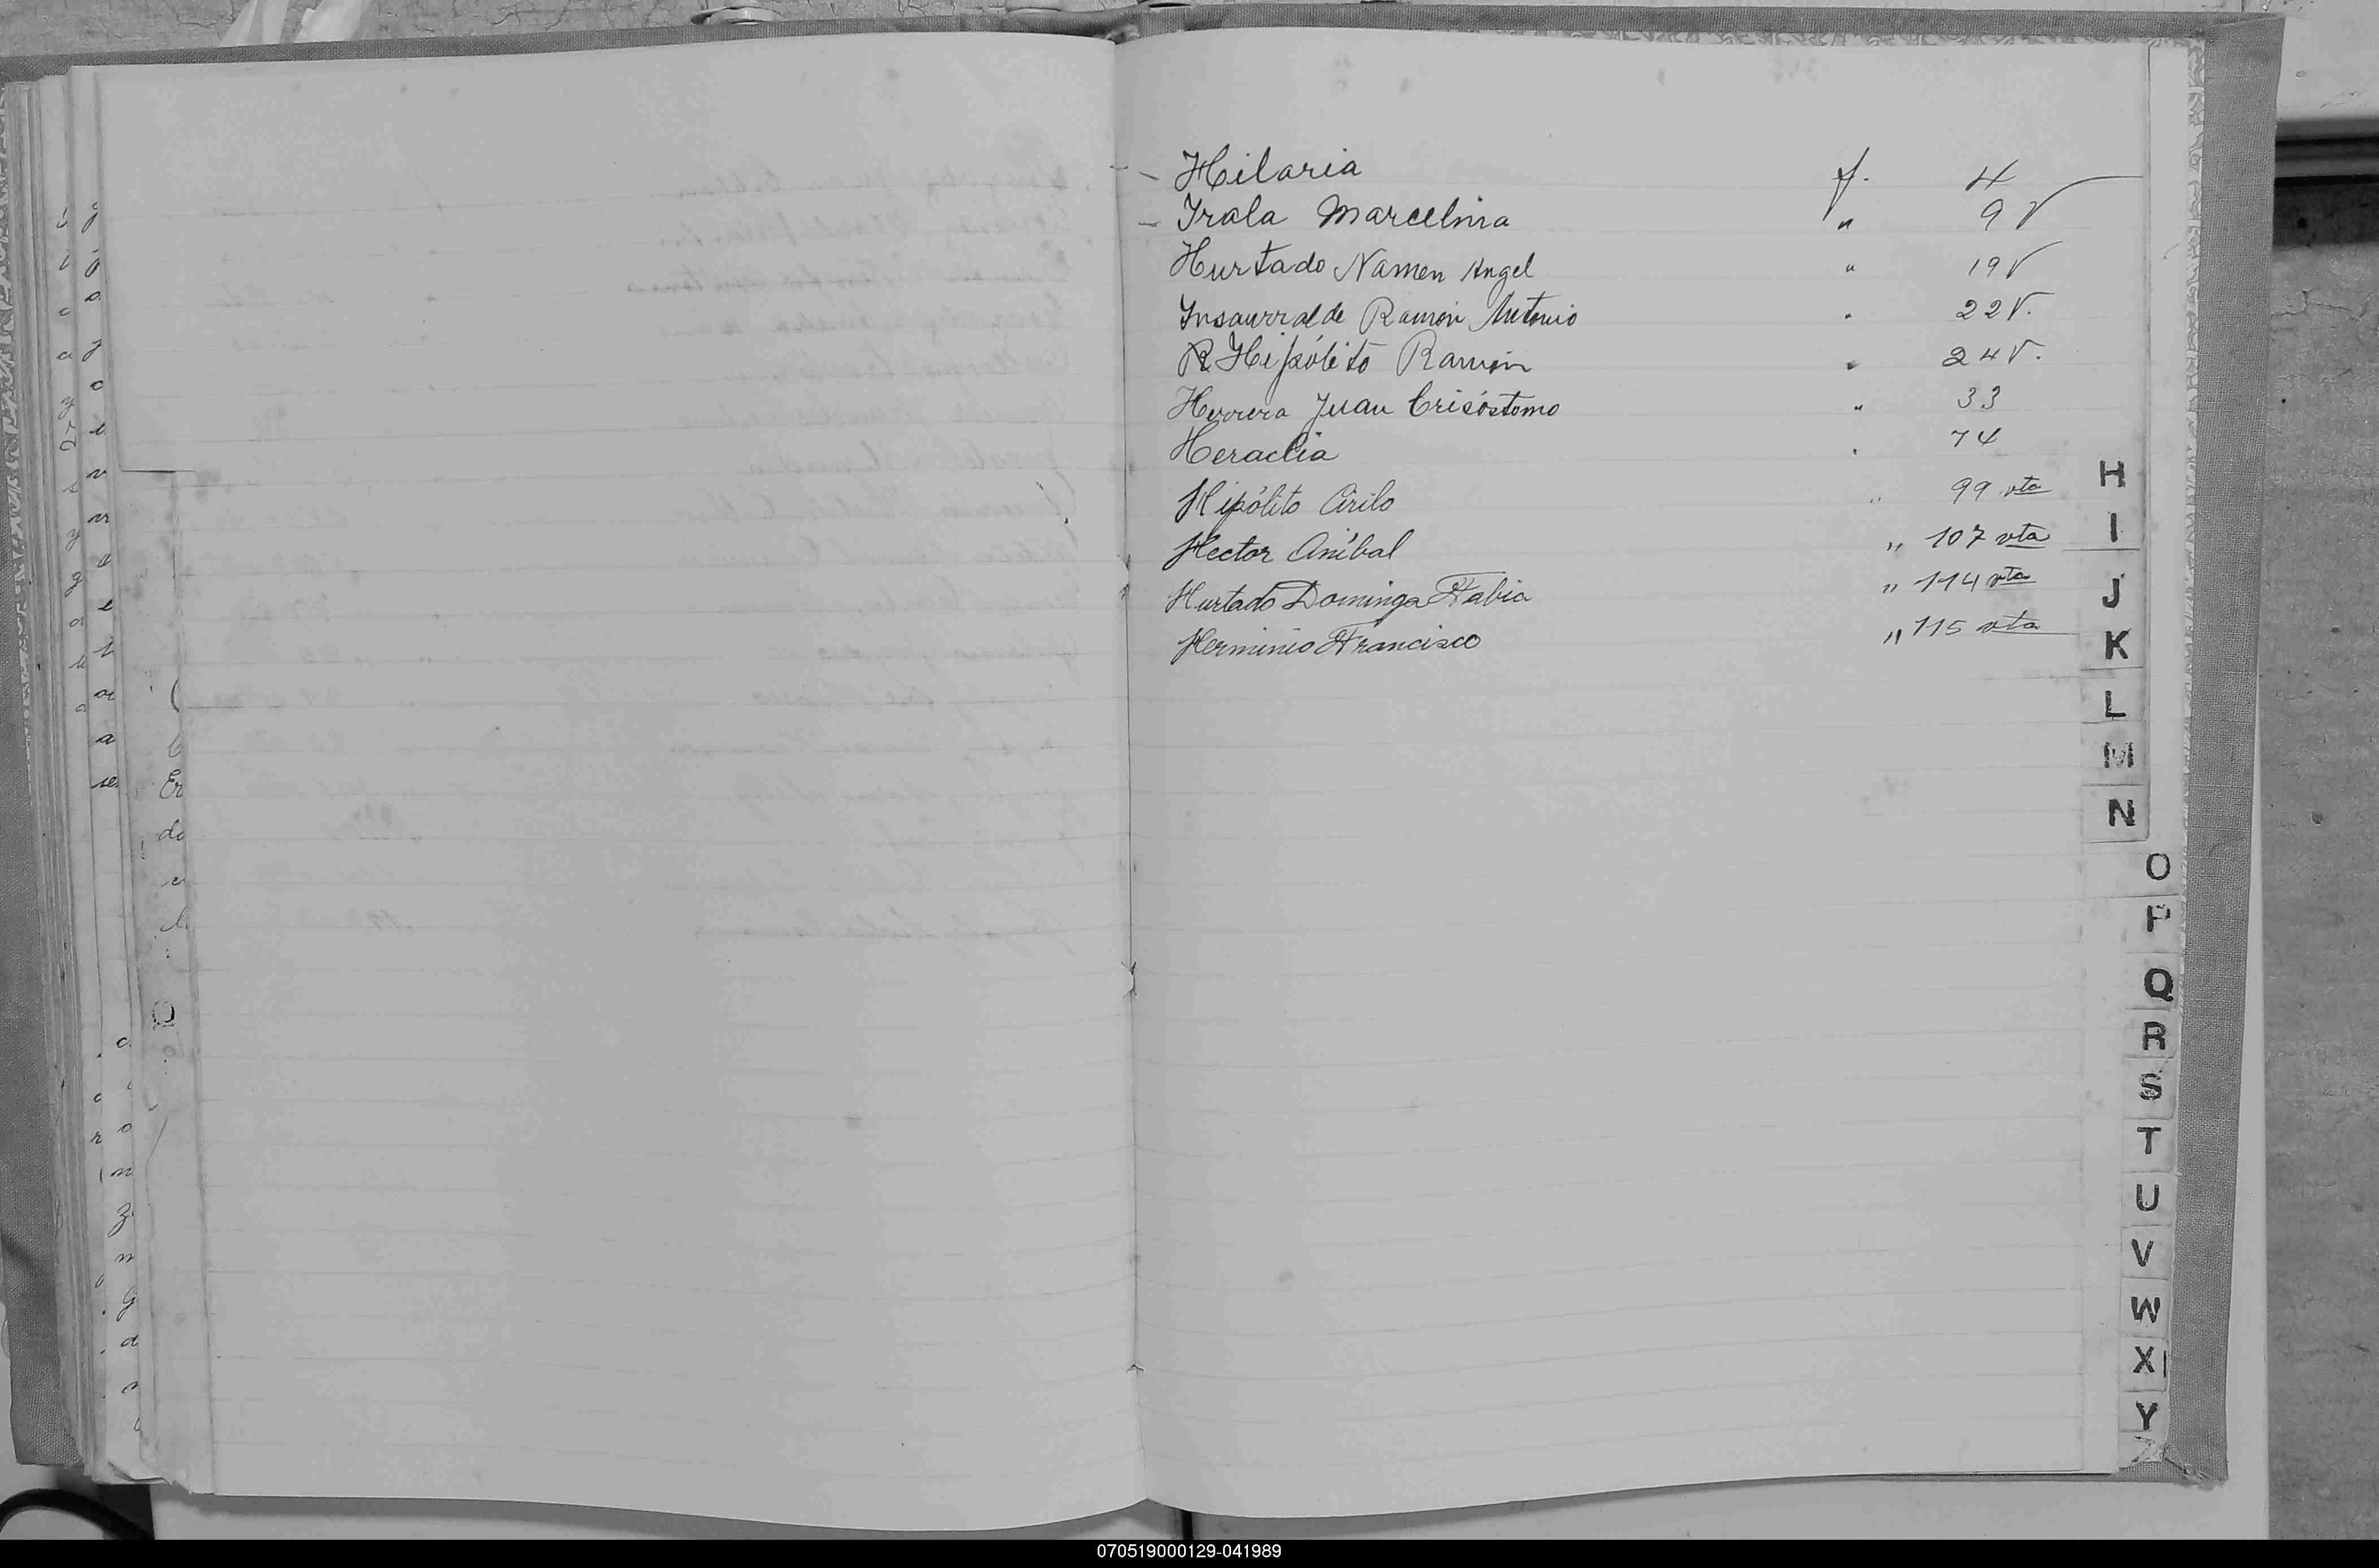 Hilaria f. 4
Irala Marcelina " 9 V
Hurtado Namen Angel " 19 V
Ynsaurralde Ramón Antonio " 22 V.
R Hipólito Ramón " 24 V.
Herrera Juan Crisóstomo " 33
Heraclia " 74
Hipólito Cirilo " 99 vta
Hector Aníbal " 107 vta
Hurtado Dominga Fabia " 114 vta
Herminio Francisco " 115 vta
H
I
J
K
L
M
N
O
P
Q
R
S
T
U
V
W
X
Y
Z
070519000129-041989